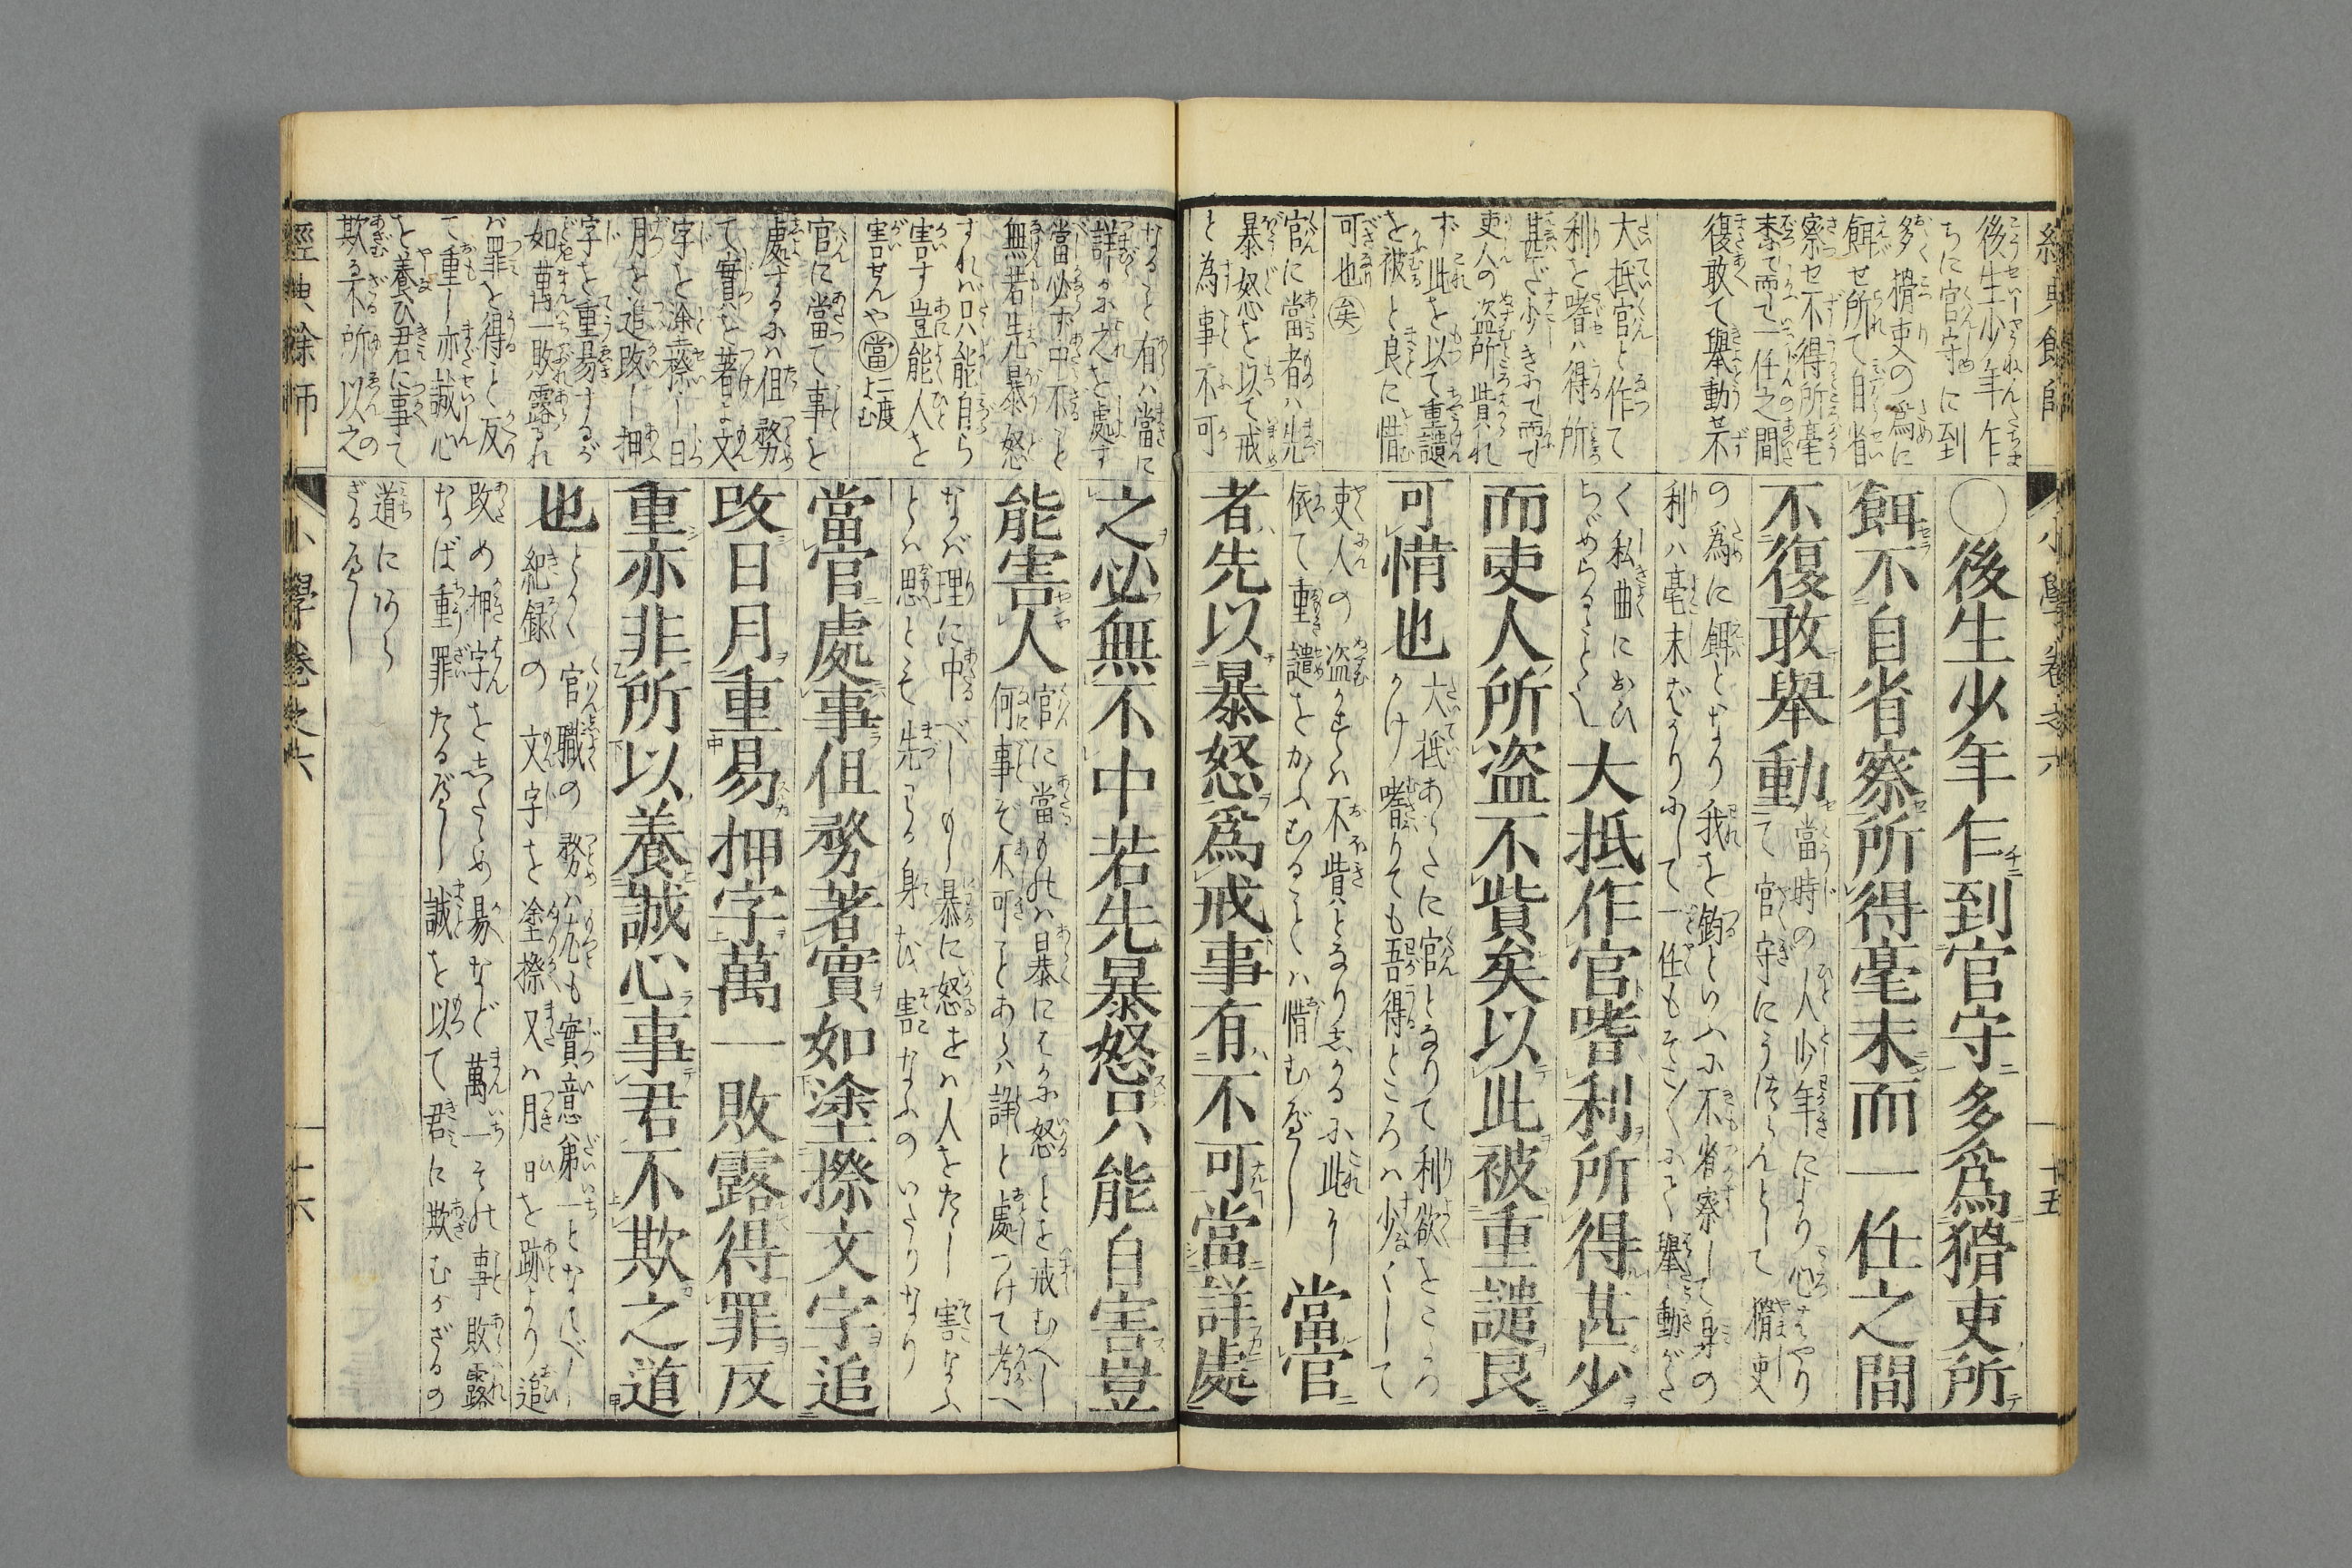 經典餘師 小學卷之六 十五
後生少年乍
ちに官守に到
多く猾吏の爲に
餌せ所て自省
察せ不得所毫
末にて而して一任之間
復敢て擧動せ不
大抵官と作て
利を嗜ハ得る所
甚だ少きふて而して
吏人の盗所貲れ
ず此を以て重譴
を被こと良に惜
可也㊀矣
官に當者ハ先
暴怒を以て戒
と為事不可
〇後生少年乍到官守多爲猾吏所
餌不自省察所得毫末而一任之間
不復敢擧動當時の人少年により心はやり
て官守にうつらんとして猾吏
の爲に餌となり我を釣といふに不省察して身の
利ハ毫末ばかりにして一任もそこ〳〵にて擧動がた
く私曲におひ
ちぢめらるゝとし大抵作官嗜利所得甚少
而吏人所盗不貲矣以此被重譴良
可惜也大抵あらたに官となりて利欲をこころ
がけ嗜りても吾得ところハ少くして
吏人の盗かすハ不貲となり志かるに此に
依て重譴をかふむることハ惜むべし當官
者先以暴怒爲戒事有不可當詳處
なること有ハ當に
詳かに之を處す
當必ず中不こと
無若先暴怒
すれハ只能自ら
害す豈能人を
害せんや㊀當二度よむ
官に當て事を
處するふハ但務
て實を著よ文
字を塗擦し日
月を追改し押
字を重易するが
如萬一敗露るれ
バ罪を得こと反
て重し亦誠心
を養ひ君に事て
欺る不所以之
之必無不中若先暴怒只能自害豈
能害人官に當ものハ暴にはかに怒ことを戒むべし
何事ぞ不可ことあらハ詳と處つけて考へ
なバ理に中べしもし暴に怒をハ人をたし害なふ
とハ思へとも先づる身を害なふのいたりなり
當官處事但務著實如塗擦文字追
改日月重易押字萬一敗露得罪反
重亦非所以養誠心事君不欺之道
也とかく官職の務ハ尤も實意第一となすべし
紀録の文字を塗擦又ハ月日を跡より追
改め押字を志たゝめ易など萬一その事敗露
なば重罪たるべし誠を以て君に欺むかざるの
道にあら
ざるべし
經典餘師 小學卷之六 十六